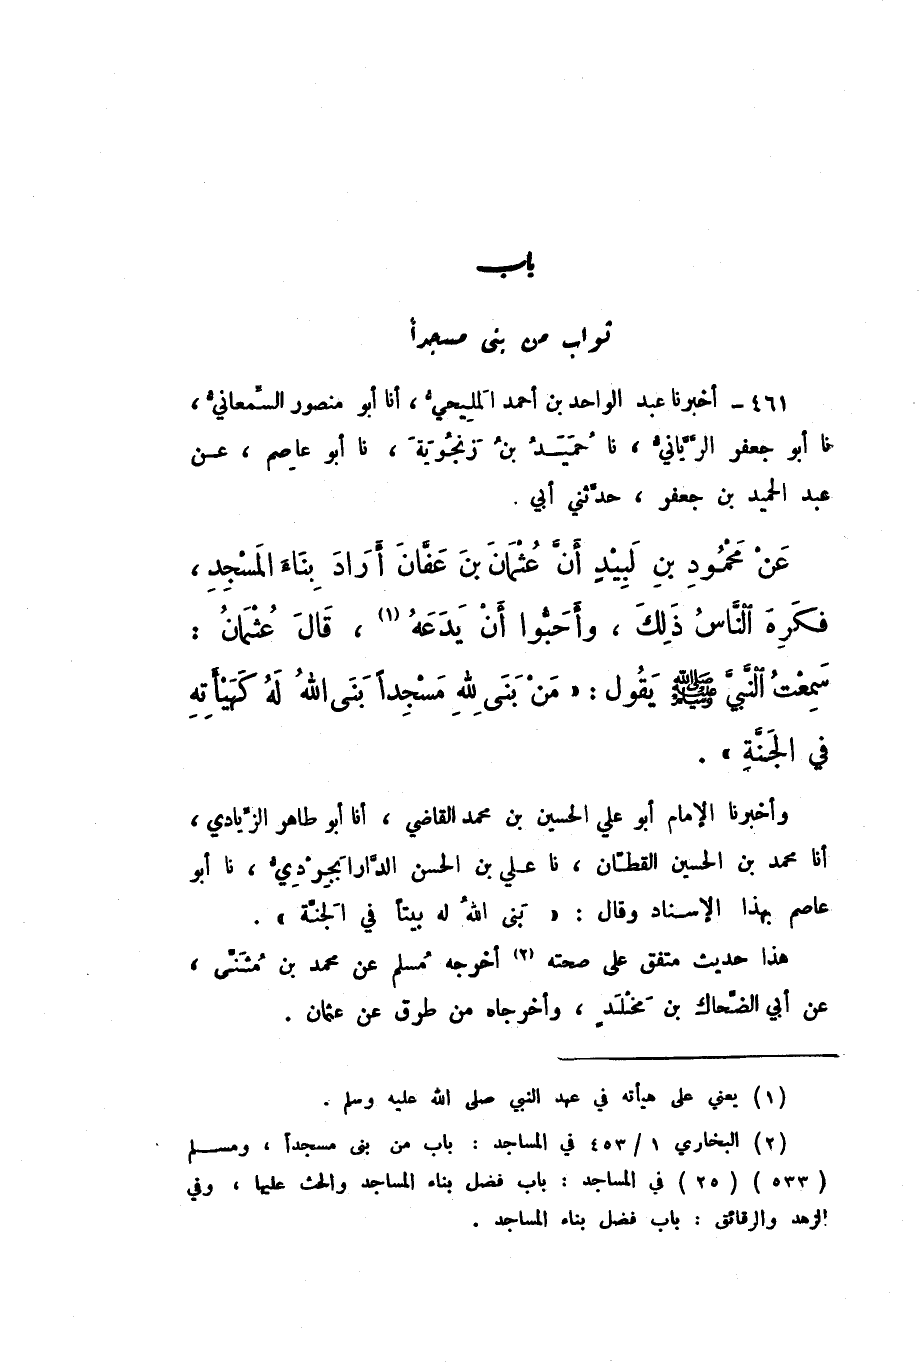 باب
ثواب من بنى مسجداً
٤٦١ - أخبرنا عبد الواحد بن أحمد المَليحيُّ ، أنا أبو منصور السَّمعانيُّ ،
نا أبو جعفر الرَّيَّانيُّ ، نا حُمَيَدُ بنُ زَنجُويَةَ ، نا أبو عاصم ، عن
عبد الحميد بن جعفر ، حدَّثني أبي .
عَنْ مَحْمُودِ بنِ لَبِيْدٍ أَنَّ عُثْمَانَ بنَ عَفَّانَ أَرَادَ بِنَاءَ المَسْجِدِ ،
فَكَرِهَ ٱلنَّاسُ ذَلِكَ ، وأَحَبُّوا أَنْ يَدَعَهُ (١) ، قَالَ عُثْمَانُ :
سَمِعْتُ ٱلنَّبيَّ ﷺ يَقُول : « مَنْ بَنَى لِلهِ مَسْجِداً بَنَى اللهُ لَهُ كَهَيْأَتِهِ
في الجَنَّةِ » .
وأخبرنا الإمام أبو علي الحسين بن محمد القاضي ، أنا أبو طاهر الزِّيادي ،
أنا محمد بن الحسين القطَّان ، نا علي بن الحسن الدَّارابجِرْدِيُّ ، نا أبو
عاصم بهذا الإسناد وقال : « بَنى اللهُ له بيتاً في الجَنَّة » .
هذا حديث متفق على صحته (٢) أخرجه مُسلم عن محمد بن مُثنَّى ،
عن أبي الضَّحاك بن مَخْلَدٍ ، وأخرجاه من طرق عن عثمان .
(١) يعني على هيأته في عهد النبي صلى الله عليه وسلم .
(٢) البخاري ١ / ٤٥٣ في المساجد : باب من بنى مسجداً ، ومسلم
( ٥٣٣ ) ( ٢٥ ) في المساجد : باب فضل بناء المساجد والحث عليها ، وفي
الزهد والرقائق : باب فضل بناء المساجد .